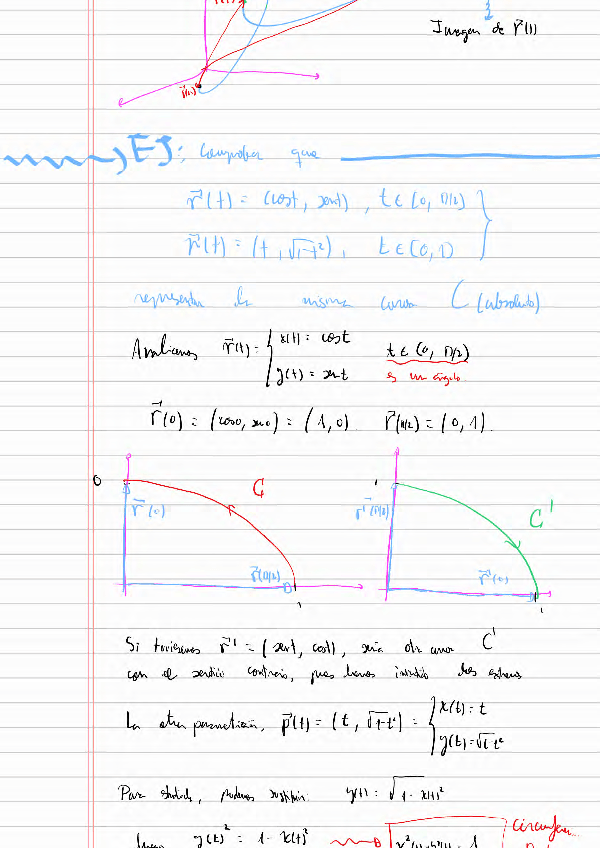 Imagen de r⃗(t)
EJ: Comprobar que
r⃗(t) = (cost, sent), t ∈ [0, π/2)
p⃗(t) = (t, √1-t²), t ∈ [0,1)
representan la misma curva C (absoluto)
Analicemos r⃗(t) = { x(t) = cost
y(t) = sent
t ∈ [0, π/2)
es un ángulo
r⃗(0) = (cos0, sen0) = (1,0) r⃗(π/2) = (0,1).
0
C
r⃗(0)
r⃗(π/2)
1
1
C'
r⃗'(π/2)
r⃗'(0)
1
Si tuviésemos r⃗' = (sent, cost), sería otra curva C'
con el sentido contrario, pues hemos invertido los extremos
La otra parametrización, p⃗(t) = (t, √1-t²) = { x(t) = t
y(t) = √1-t²
Para podemos sustituir: y(t) = √1 - x(t)²
luego y(t)² = 1 - x(t)²
x²(t)+y²(t) = 1